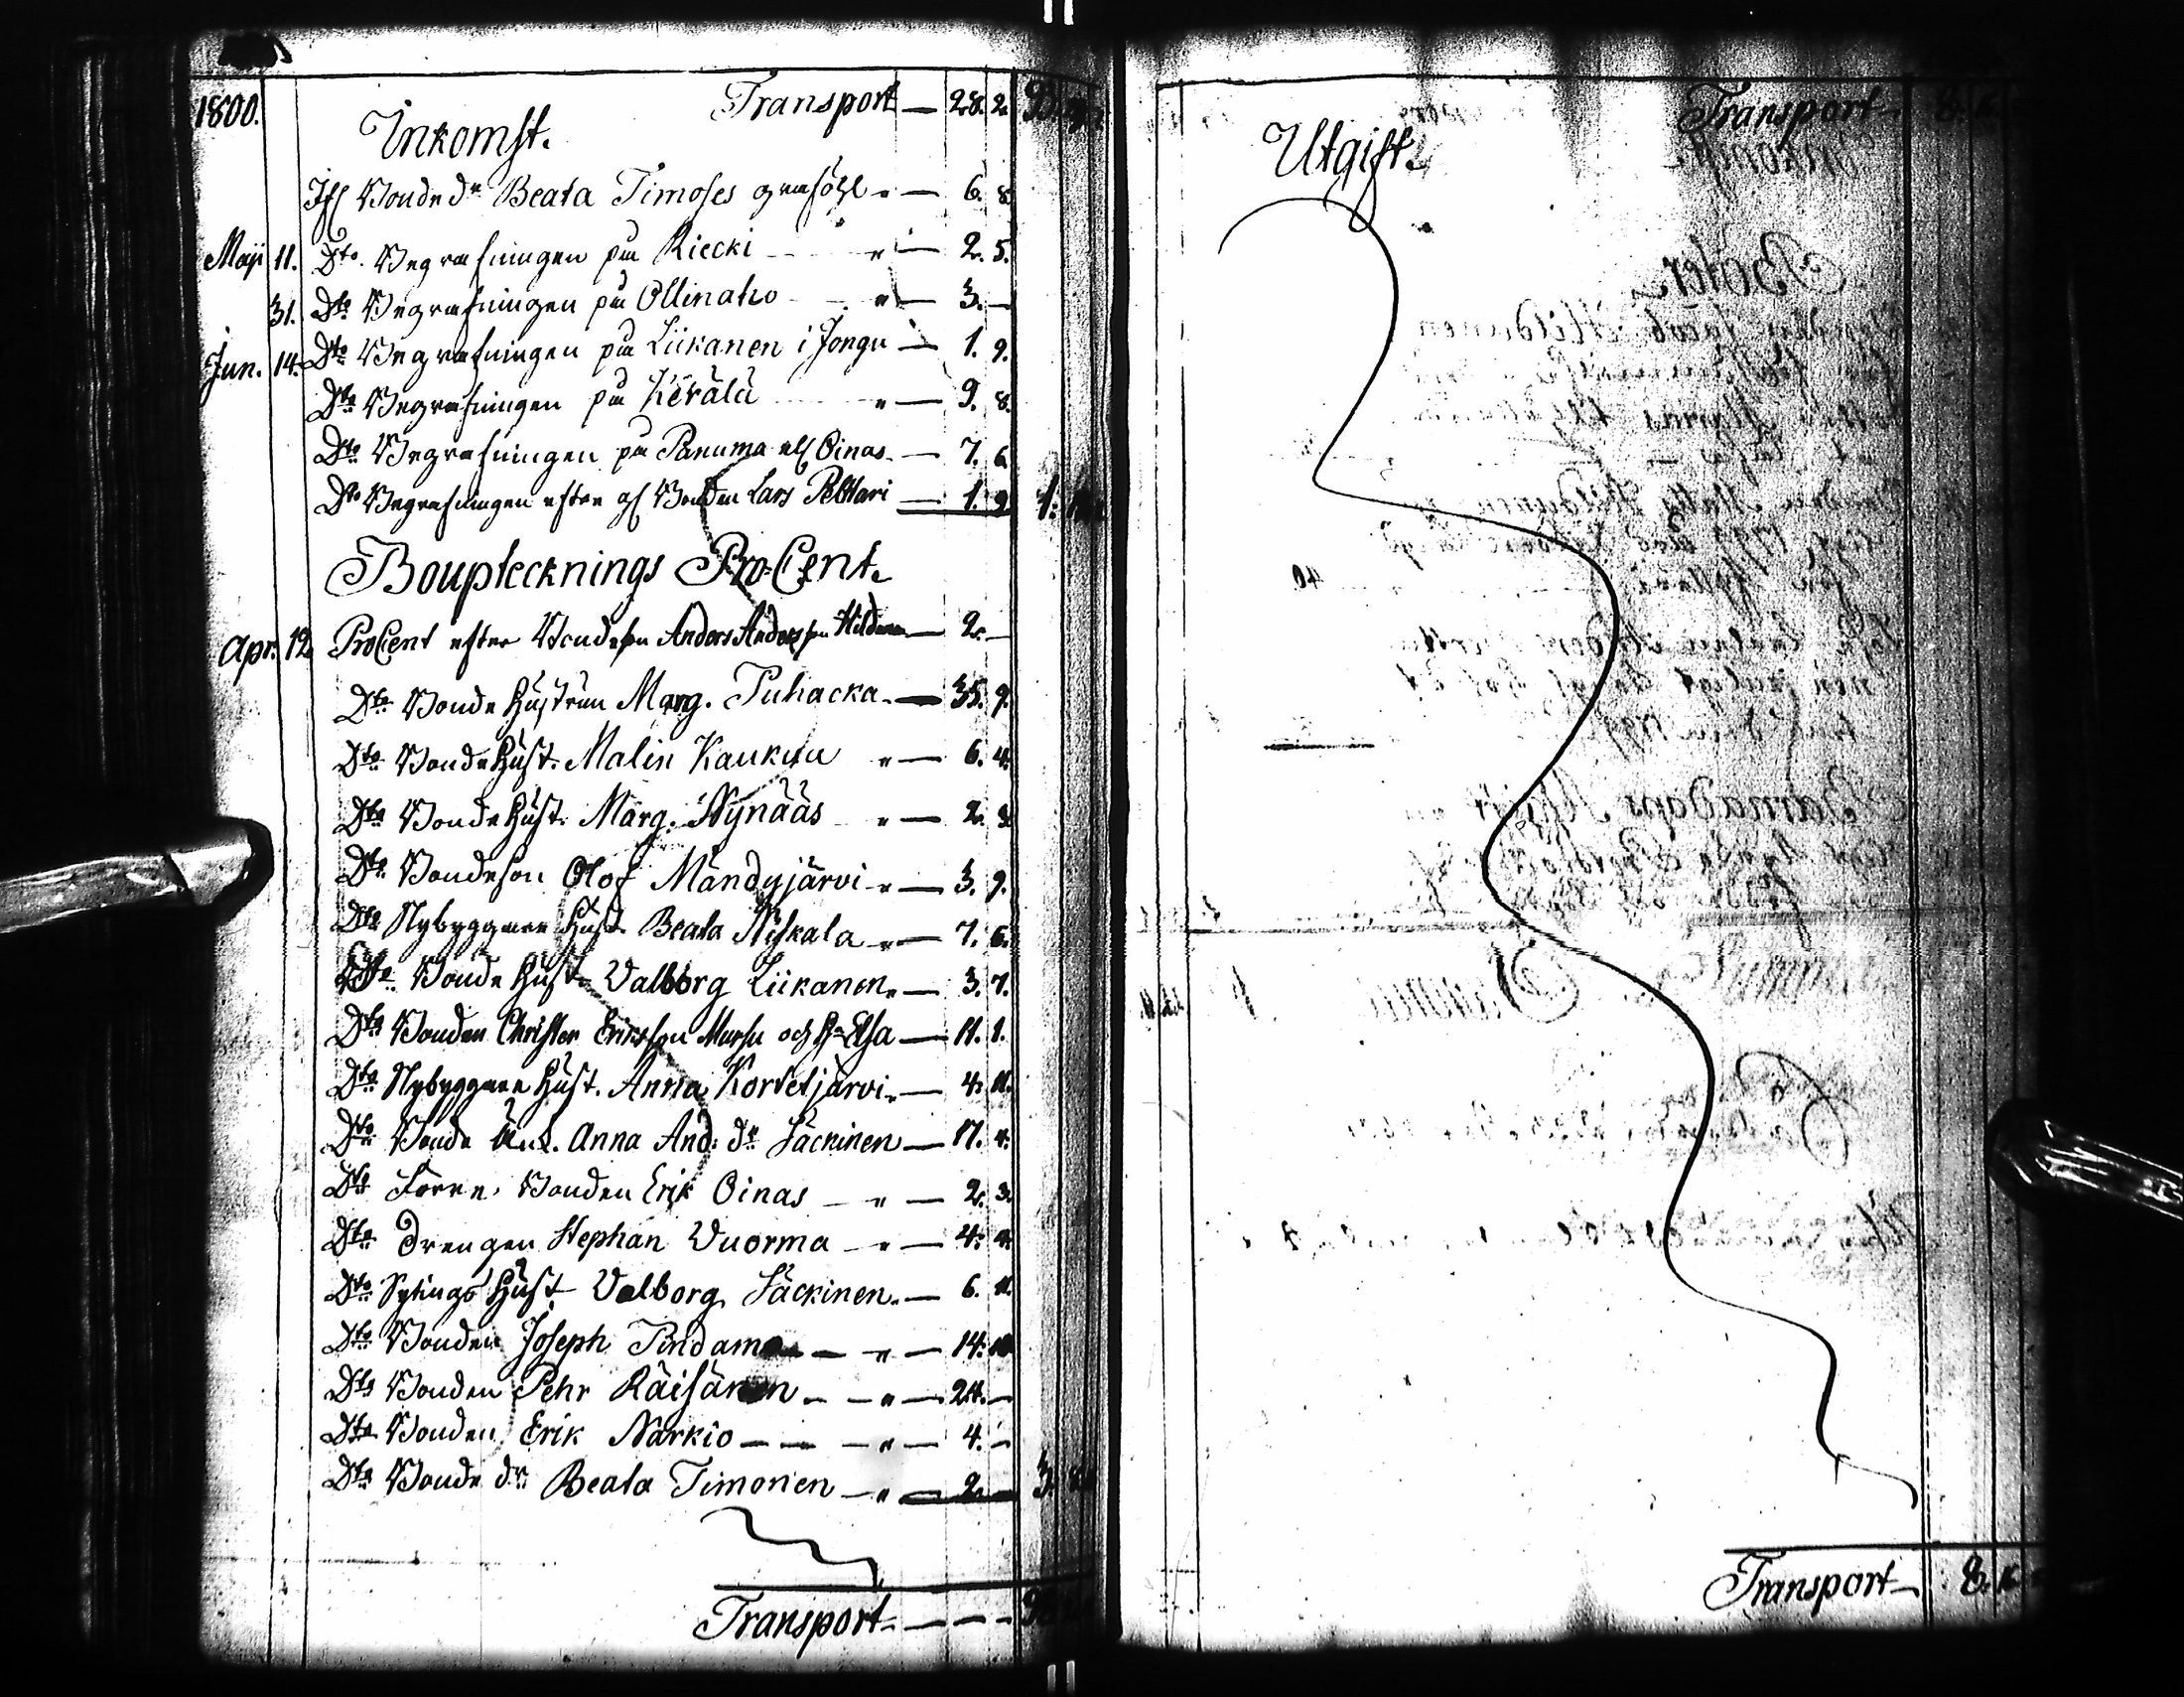 1800. Transport — 28. 2
Inkomst.
Bonde dr Beata Timoses grafööl " — 6. 8
Maji 11. Dto Begrafningen på Kiecki " — 2. 5.
31. Dto Begrafningen på Ollinaho " — 3. —
Jun. 14. Dto Begrafningen på Liikanen i Jongu — 1. 9.
Dto Begrafningen på Kerälä " — 9. 8.
Dto Begrafningen på Panuma ell Oinas — 7. 6
Dto Begrafningen efter Bonden Lars Pelttari — 1. 9 1.
Bouptecknings Pro Cent.
Apr. 12 ProCent efter Bondeson Anders Andersson — 2. —
Dto Bonde Hustrun Marg. Puhacka — 35. 9.
Dto Bonde Hust. Malin " — 6. 4.
Dto Bonde Hust. Marg. Nynääs " — 2. 3
Dto Bondeson Olof Mändyjärvi " — 3. 9.
Dto Nybyggare Hust. Beata Niskala " — 7. 6.
Dto Bonde Hust. Valborg Liikanen " — 3. 7.
Dto Bonden Christer Ersson Mursu och H. Elsa — 11. 1.
Dto Nybyggare Hust. Anna Kortetjärvi — 4. 11.
Dto Bonde Anna And: dr Säckinen — 17. 4.
Dto Förre Bonden Erik Oinas — " — 2. 3.
Dto Drengen Stephan Vuorma — " — 4.
Dto Sytings Hust. Valborg Säckinen — 6. 11.
Dto Bonden Joseph Pindama — " — 14. 10
Dto Bonden Pehr Räisänen — " — 24. —
Dto Bonden Erik Närkio — — " — 4. —
Dto Bonde dr Beata Timonen — " — 2. — 3.
Transport — — —
Transport
Utgift.
Transport — 8.